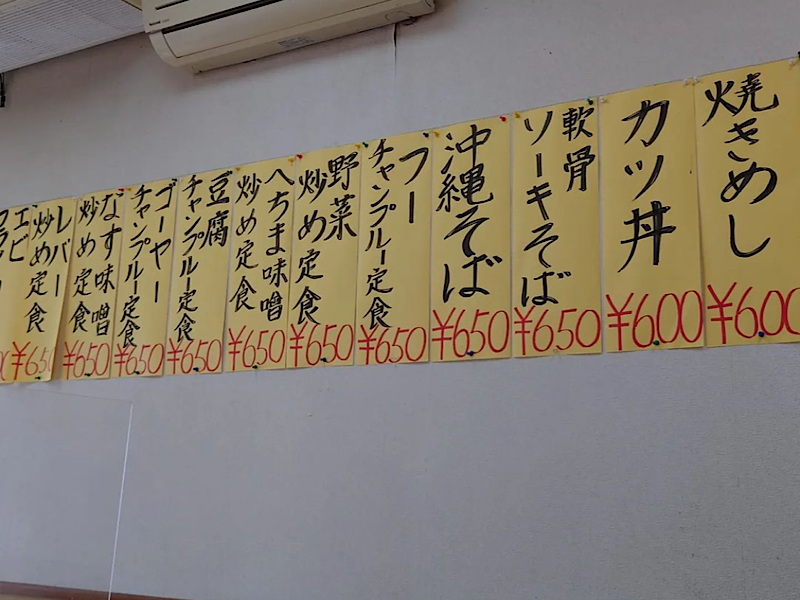 焼きめし
¥600
カツ丼
¥600
軟骨
ソーキそば
¥650
沖縄そば
¥650
フー
チャンプルー定食
¥650
野菜
炒め定食
¥650
へちま味噌
炒め定食
¥650
豆腐
チャンプルー定食
¥650
ゴーヤー
チャンプルー定食
¥650
なす味噌
炒め定食
¥650
レバー
炒め定食
¥650
エビ